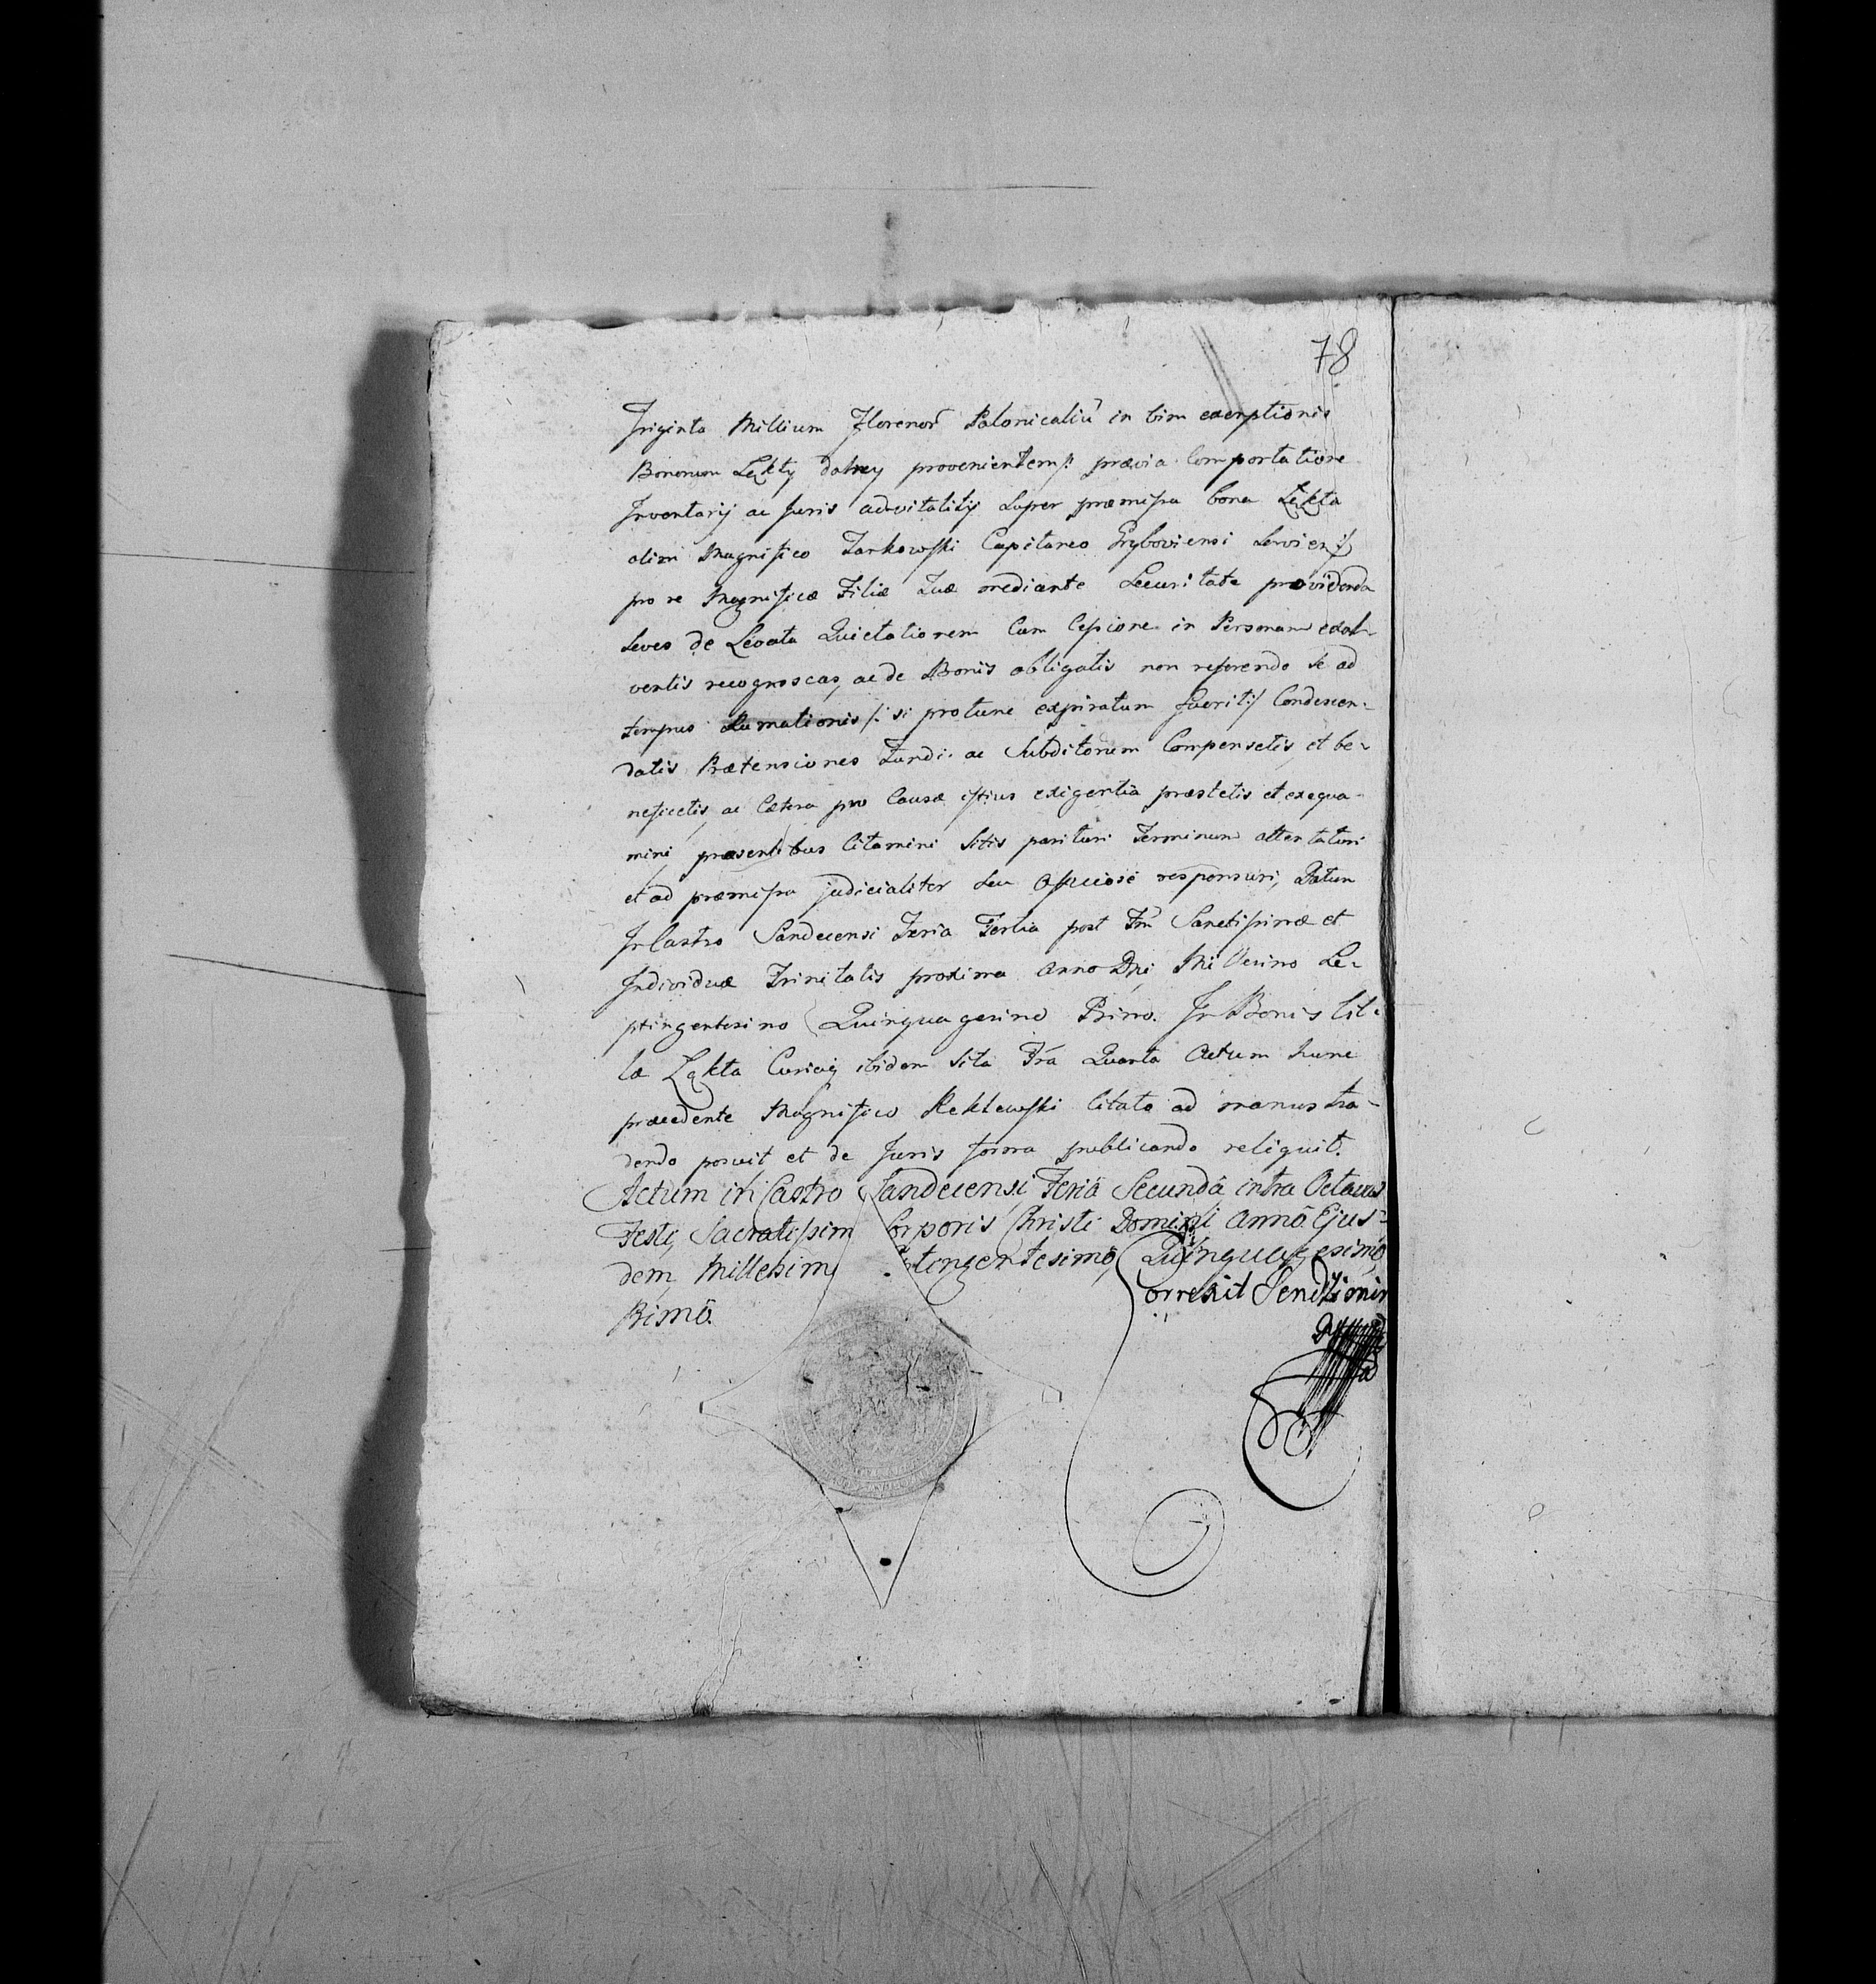 78
Triginta Millium Florenor̃ Polonicaliũ in vim exemptionis
Bonorum Łękty dolney provenientem/: prævia Comportatione
Inventarij ac Juris advitalitij super præmissa bona Łękta
olim Magnifico Jarkowski Capitaneo Gryboviensi servien:/
pro re Magnificæ Filiæ Suæ mediante Securitate providenda
seveo de Levata Quietationem Cum Cessione in Personam exol-
ventis recognoscas, ac de Bonis obligatis non referendo se ad
tempus /: si protunc expiratum fuerit:/ Condescen-
datis Prætensiones Fundi ac Subditorum Compensetis, et be-
neficetis, ac Cætera pro Causæ istius exigentia præstetis et exequa-
mini, præsentibus Citamini Sitis parituri Terminum attentaturi
et ad præmissa judicialiter seu Officiose responsuri, Datum
In Castro Sandecensi Feria Tertia post Fm̃ Sanctissimæ et
Individuæ Trinitatis proxima Anno Dni Millesimo Se-
ptingentesimo Quinquagesimo Primo. In Bonis Vil-
læ Łękta Curiaq ibidem sita Fra Quarta Actum hunc
præcedente Magnifico Reklewski Citato ad manus tra-
dendo posuit et de Juris forma publicando reliquit.
Actum in Castro Sandecensi Feriâ Secundâ intra Octavas
Festi, Sacratissim Corporis Christi Domini Annô Ejus-
dem Millesim ptingentesimô, Quinquagesimô,
Primô. Correxit